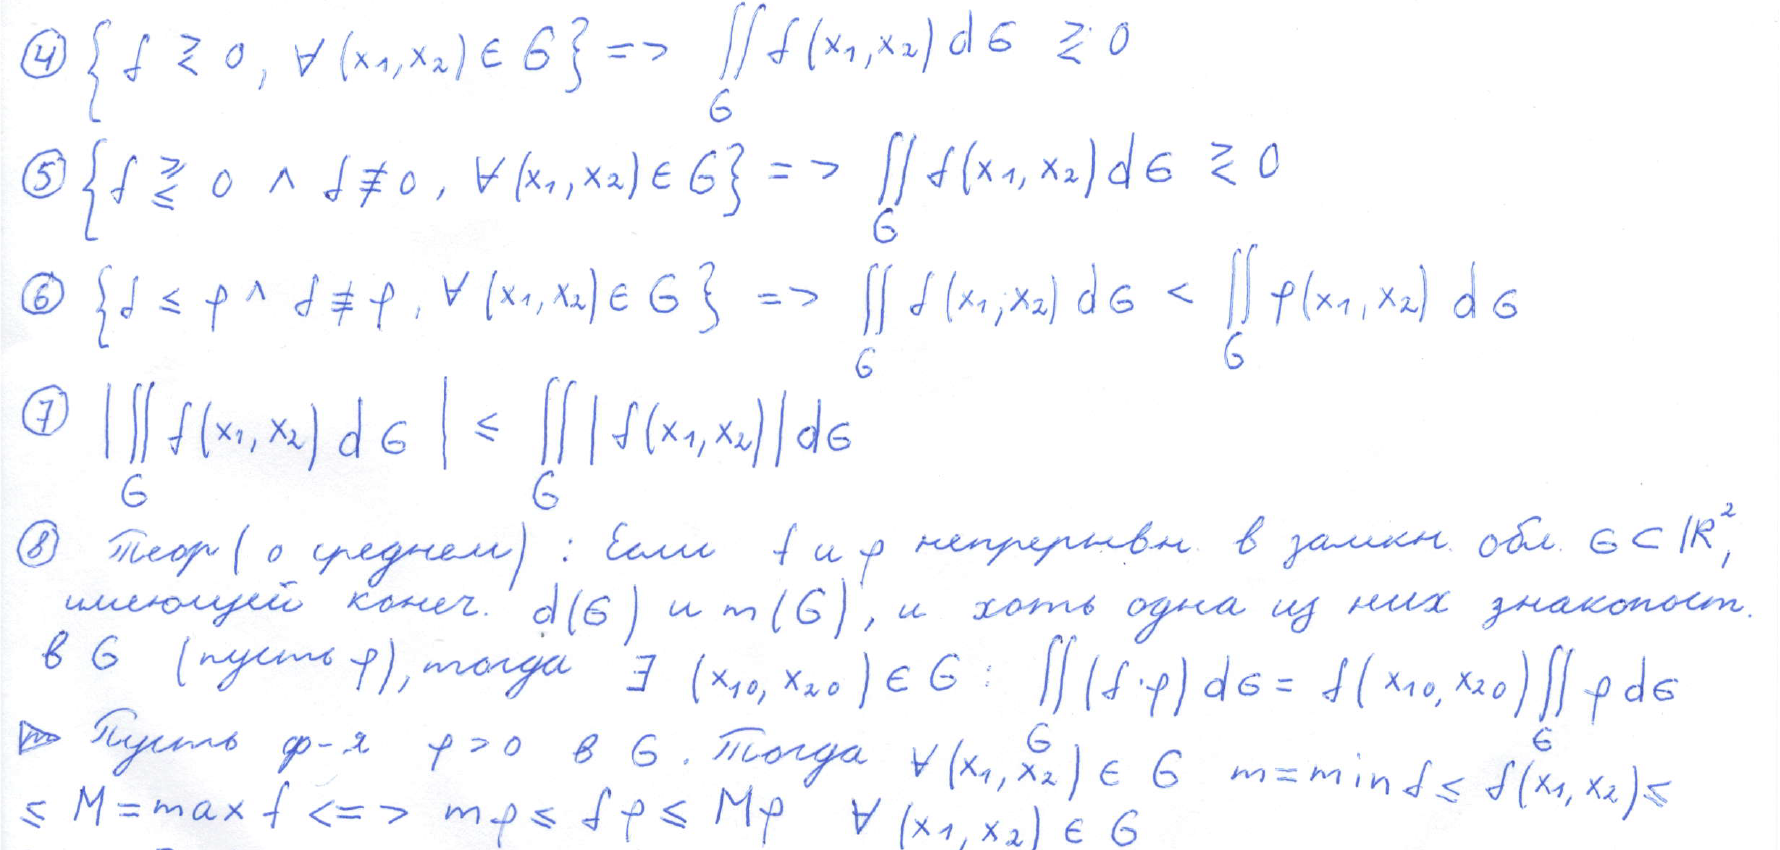 ④ { f ≷ 0, ∀ (x₁, x₂) ∈ G } => ∬_G f(x₁, x₂) dG ≷ 0
⑤ { f ⪌ 0 ∧ f ≢ 0, ∀ (x₁, x₂) ∈ G } => ∬_G f(x₁, x₂) dG ≷ 0
⑥ { f ≤ φ ∧ f ≢ φ, ∀ (x₁, x₂) ∈ G } => ∬_G f(x₁, x₂) dG < ∬_G φ(x₁, x₂) dG
⑦ | ∬_G f(x₁, x₂) dG | ≤ ∬_G | f(x₁, x₂) | dG
⑧ Теор (о среднем) : Если f и φ непрерывн. в замкн. обл. G ⊂ ℝ²,
имеющей конеч. d(G) и m(G), и хоть одна из них знакопост.
в G (пусть φ), тогда ∃ (x₁₀, x₂₀) ∈ G : ∬_G (f·φ) dG = f(x₁₀, x₂₀) ∬_G φ dG
▷ Пусть ф-я φ > 0 в G. Тогда ∀ (x₁, x₂) ∈ G m = min f ≤ f(x₁, x₂) ≤
≤ M = max f <=> mφ ≤ fφ ≤ Mφ ∀ (x₁, x₂) ∈ G